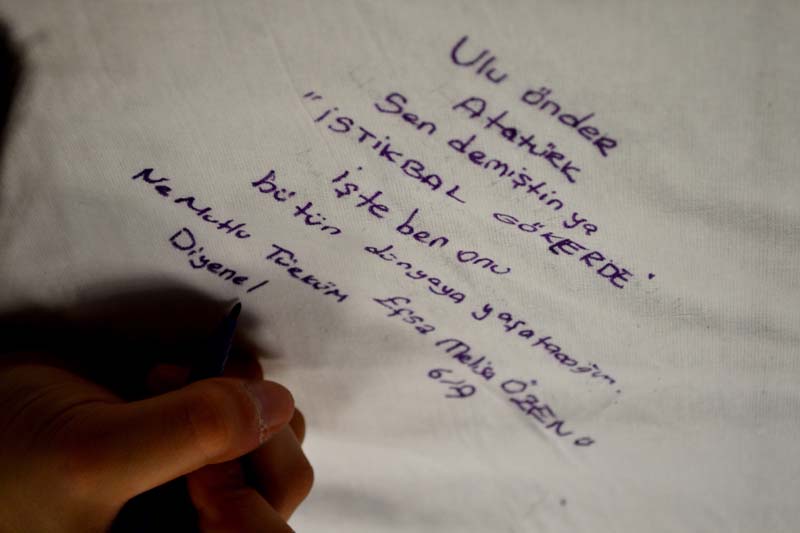 Ulu önder
Atatürk
Sen demiştin ya
"İSTİKBAL GÖKERDE"
İşte ben onu
bütün dünyaya yaşatacağım.
Ne Mutlu Türküm
Diyene!
Efsa Melisa ÖZEN
6/A